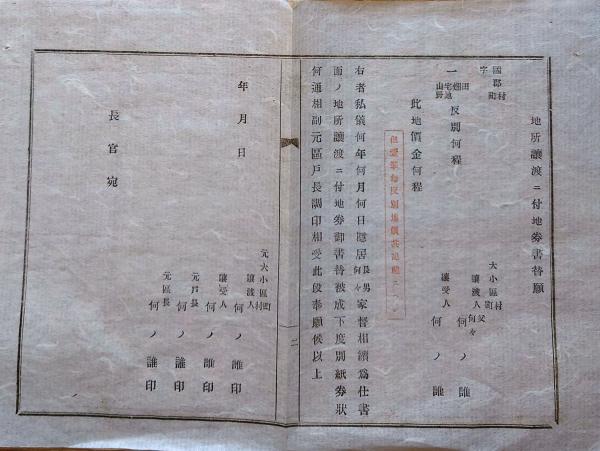 地所讓渡ニ付地券書替願
國郡村町
字
大小區村町
讓渡人父何々
何ノ誰
讓受人
何ノ誰
一田畑宅地山野反別何程
此地價金何程
右者私儀何年何月何日隱居長男何々家督相續爲仕書
面ノ地所讓渡ニ付地券御書替被成下度別紙券狀
何通相副元區戸長調印相受此段奉願候以上
元大小區町村
讓渡人
何ノ誰印
讓受人
何ノ誰印
元戸長
何ノ誰印
元區長
何ノ誰印
年月日
長官宛
二